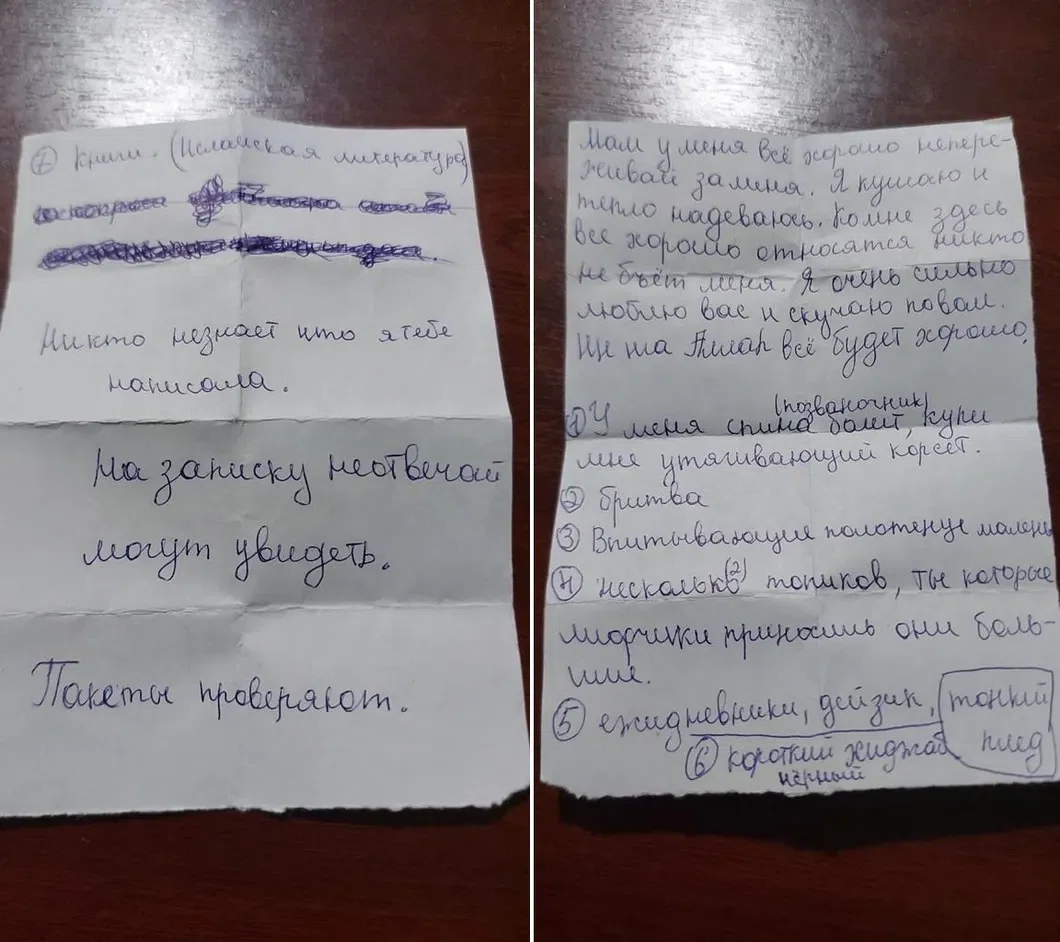 ⑦ Книги. (Исламская литература)
Никто незнает что я тебе
написала.
На записку неотвечай
могут увидеть.
Пакеты проверяют.
Мам у меня всё хорошо непере-
живай за меня. Я кушаю и
тепло надеваюсь. Ко мне здесь
все хорошо относятся никто
не бъёт меня. Я очень сильно
люблю вас и скучаю по вам.
Ин ша Аллаh всё будет хорошо.
(позваночник)
① У меня спина болит, купи
мне утягивающий корсет.
② бритва
③ Впитывающие полотенце малень
④ несколько (2) топиков, ты которые
лифчики приносишь они боль-
шие.
⑤ ежидневники, дейзик, тонкий
плед
⑥ короткий хиджаб
чёрный